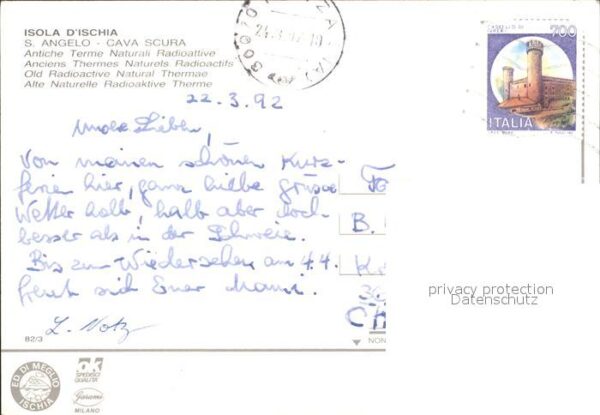 ISOLA D'ISCHIA
S. ANGELO - CAVA SCURA
Antiche Terme Naturali Radioattive
Anciens Thermes Naturels Radioactifs
Old Radioactive Natural Thermae
Alte Naturelle Radioaktive Therme
700
ITALIA
22.3.92
Lieben,
Von meinen schönen Kurz-
ferien hier, ganz liebe Grüsse
Wetter halb, halb aber doch
besser als in der Schweiz.
Bis zum Wiedersehen am 4.4.
freut sich Euer Mami.
L. Notz
B.
30
Ch
privacy protection
Datenschutz
82/3
NON
ED. DI MEGLIO
ISCHIA
ak
SPEDISCI
QUALITA'
Garami
MILANO